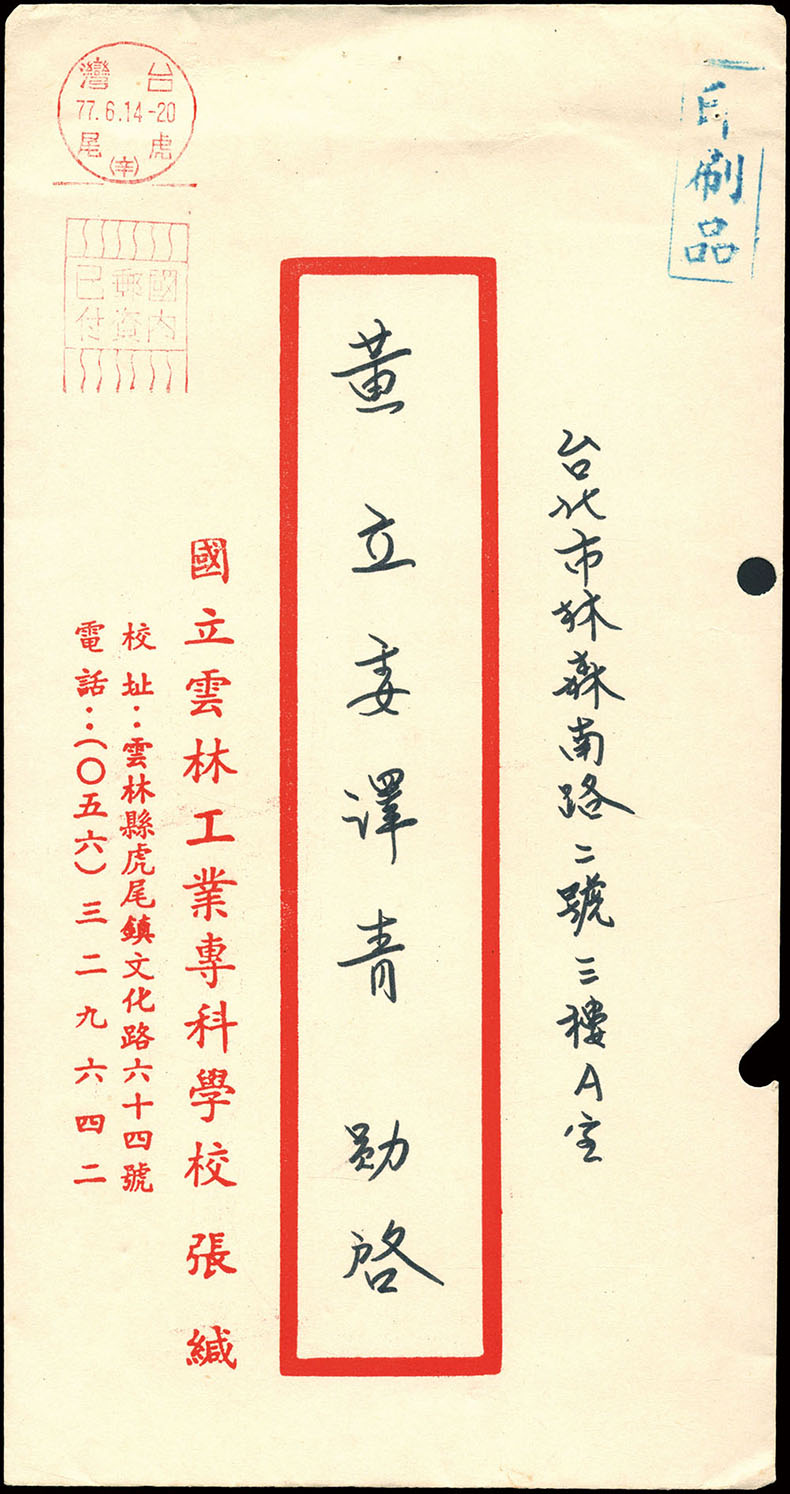 印刷品
台北市林森南路二號三樓A室
黃立委澤青 勛啓
國立雲林工業專科學校 張緘
校址：雲林縣虎尾鎮文化路六十四號
電話：（〇五六）三二九六四二
台灣
77.6.14-20
虎尾
(辛)
國內
郵資
已付